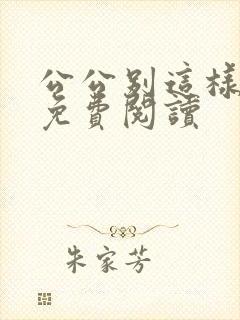 公公别這樣
免費閱讀
朱家芳